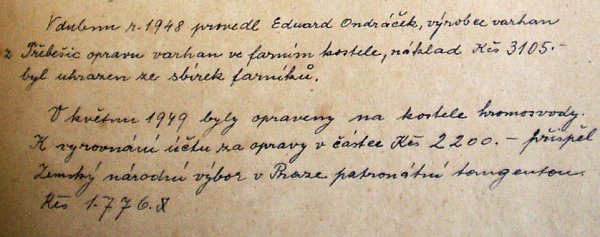 V dubnu r. 1948 provedl Eduard Ondráček, výrobce varhan
z Třebešic opravu varhan ve farním kostele, náklad Kčs 3105.-
byl uhrazen ze sbírek farníků.
V květnu 1949 byly opraveny na kostele hromosvody.
K vyrovnání účtu za opravy v částce Kčs 2200.- přispěl
Zemský národní výbor v Praze patronátní tangentou
Kčs 1.776.